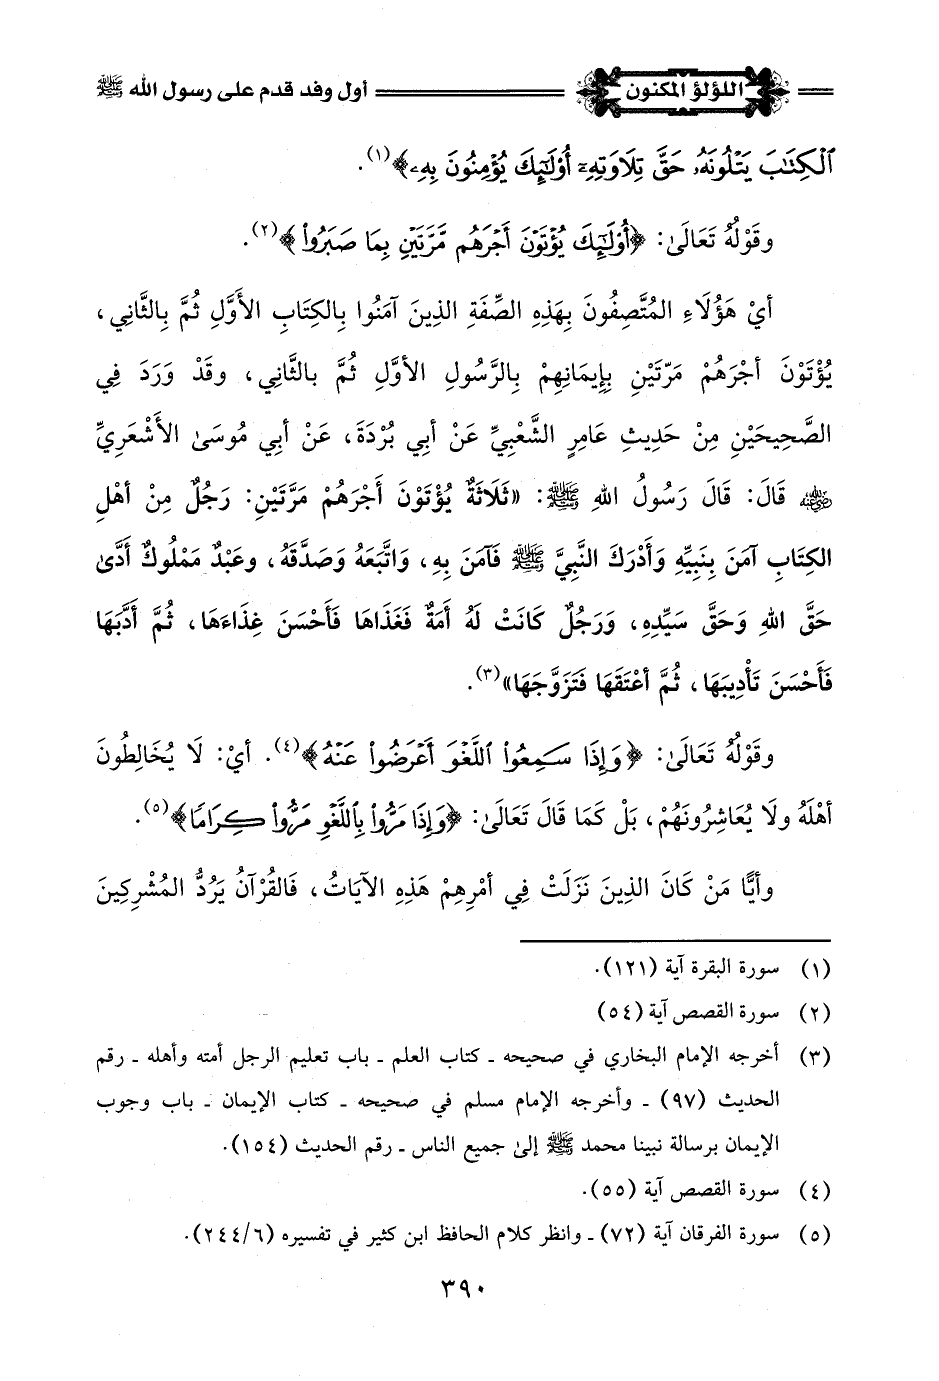 اللؤلؤ المكنون
أول وفد قدم على رسول الله ﷺ
ٱلْكِتَٰبَ يَتْلُونَهُۥ حَقَّ تِلَاوَتِهِۦٓ أُو۟لَٰٓئِكَ يُؤْمِنُونَ بِهِۦ﴾(١).
وقَوْلُهُ تَعَالَىٰ: ﴿أُو۟لَٰٓئِكَ يُؤْتَوْنَ أَجْرَهُم مَّرَّتَيْنِ بِمَا صَبَرُوا۟﴾(٢).
أيْ هَؤُلَاءِ المُتَّصِفُونَ بِهَذِهِ الصِّفَةِ الذِينَ آمَنُوا بِالكِتَابِ الأَوَّلِ ثُمَّ بِالثَّانِي،
يُؤْتَوْنَ أجْرَهُمْ مَرّتَيْنِ بِإِيمَانِهِمْ بِالرَّسُولِ الأوَّلِ ثُمَّ بالثَّانِي، وقَدْ وَرَدَ فِي
الصَّحِيحَيْنِ مِنْ حَدِيثِ عَامِرٍ الشَّعْبِيِّ عَنْ أبِي بُرْدَةَ، عَنْ أبِي مُوسَىٰ الأَشْعَرِيِّ
رضي الله عنه قَالَ: قَالَ رَسُولُ اللهِ ﷺ: «ثَلَاثَةٌ يُؤْتَوْنَ أَجْرَهُمْ مَرَّتَيْنِ: رَجُلٌ مِنْ أهْلِ
الكِتَابِ آمَنَ بِنَبِيِّهِ وَأَدْرَكَ النَّبِيَّ ﷺ فَآمَنَ بِهِ، وَاتَّبَعَهُ وَصَدَّقَهُ، وعَبْدٌ مَمْلُوكٌ أدَّىٰ
حَقَّ اللهِ وَحَقَّ سَيِّدِهِ، وَرَجُلٌ كَانَتْ لَهُ أَمَةٌ فَغَذَاهَا فَأَحْسَنَ غِذَاءَهَا، ثُمَّ أَدَّبَهَا
فَأَحْسَنَ تَأْدِيبَهَا، ثُمَّ أعْتَقَهَا فَتَزَوَّجَهَا»(٣).
وقَوْلُهُ تَعَالَىٰ: ﴿وَإِذَا سَمِعُوا۟ ٱللَّغْوَ أَعْرَضُوا۟ عَنْهُ﴾(٤). أيْ: لَا يُخَالِطُونَ
أهْلَهُ ولَا يُعَاشِرُونَهُمْ، بَلْ كَمَا قَالَ تَعَالَىٰ: ﴿وَإِذَا مَرُّوا۟ بِٱللَّغْوِ مَرُّوا۟ كِرَامًا﴾(٥).
وأيًّا مَنْ كَانَ الذِينَ نَزَلَتْ فِي أمْرِهِمْ هَذِهِ الآيَاتُ، فَالقُرْآنُ يَرُدُّ المُشْرِكِينَ
(١) سورة البقرة آية (١٢١).
(٢) سورة القصص آية (٥٤)
(٣) أخرجه الإمام البخاري في صحيحه - كتاب العلم - باب تعليم الرجل أمته وأهله - رقم
الحديث (٩٧) - وأخرجه الإمام مسلم في صحيحه - كتاب الإيمان - باب وجوب
الإيمان برسالة نبينا محمد ﷺ إلىٰ جميع الناس - رقم الحديث (١٥٤).
(٤) سورة القصص آية (٥٥).
(٥) سورة الفرقان آية (٧٢) - وانظر كلام الحافظ ابن كثير في تفسيره (٢٤٤/٦).
٣٩٠